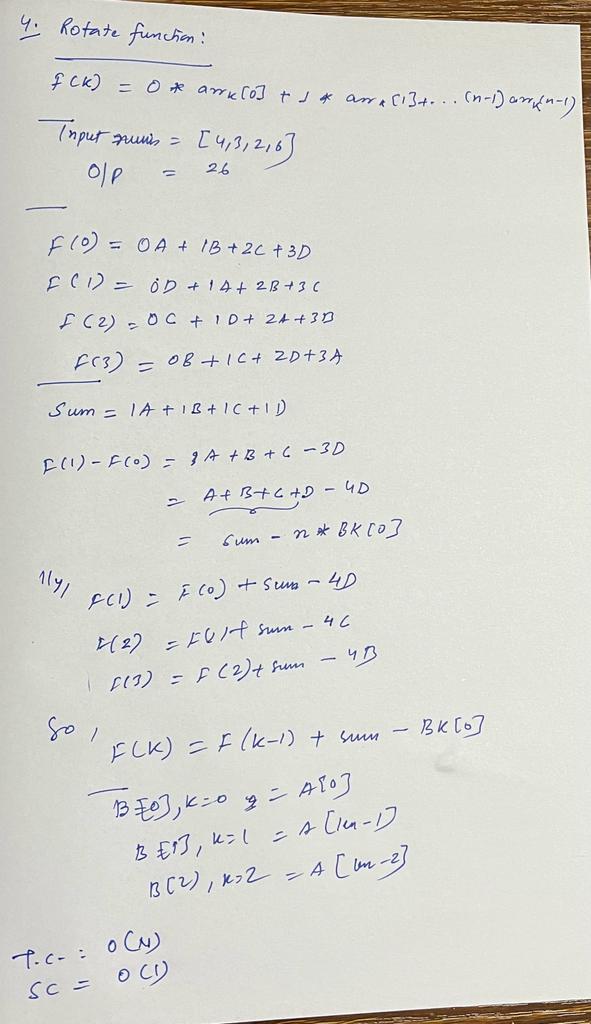 4. Rotate function:
f(K) = 0 * arrk[0] + 1 * arrk[1]+... (n-1) arrk[n-1]
Input nums = [4,3,2,6]
O/P = 26
F(0) = 0A + 1B + 2C + 3D
F(1) = 0D + 1A + 2B + 3C
F(2) = 0C + 1D + 2A + 3B
F(3) = 0B + 1C + 2D + 3A
Sum = 1A + 1B + 1C + 1D
F(1) - F(0) = A + B + C - 3D
= A + B + C + D - 4D
= sum - n * BK[0]
lly, F(1) = F(0) + Sum - 4D
F(2) = F(1)+ sum - 4C
F(3) = F(2)+ sum - 4B
So, F(K) = F(K-1) + sum - BK[0]
B[0], K=0 = A[0]
B[1], K=1 = A[len-1]
B(2), K=2 = A[len-2]
T.C. : O(N)
SC = O(1)